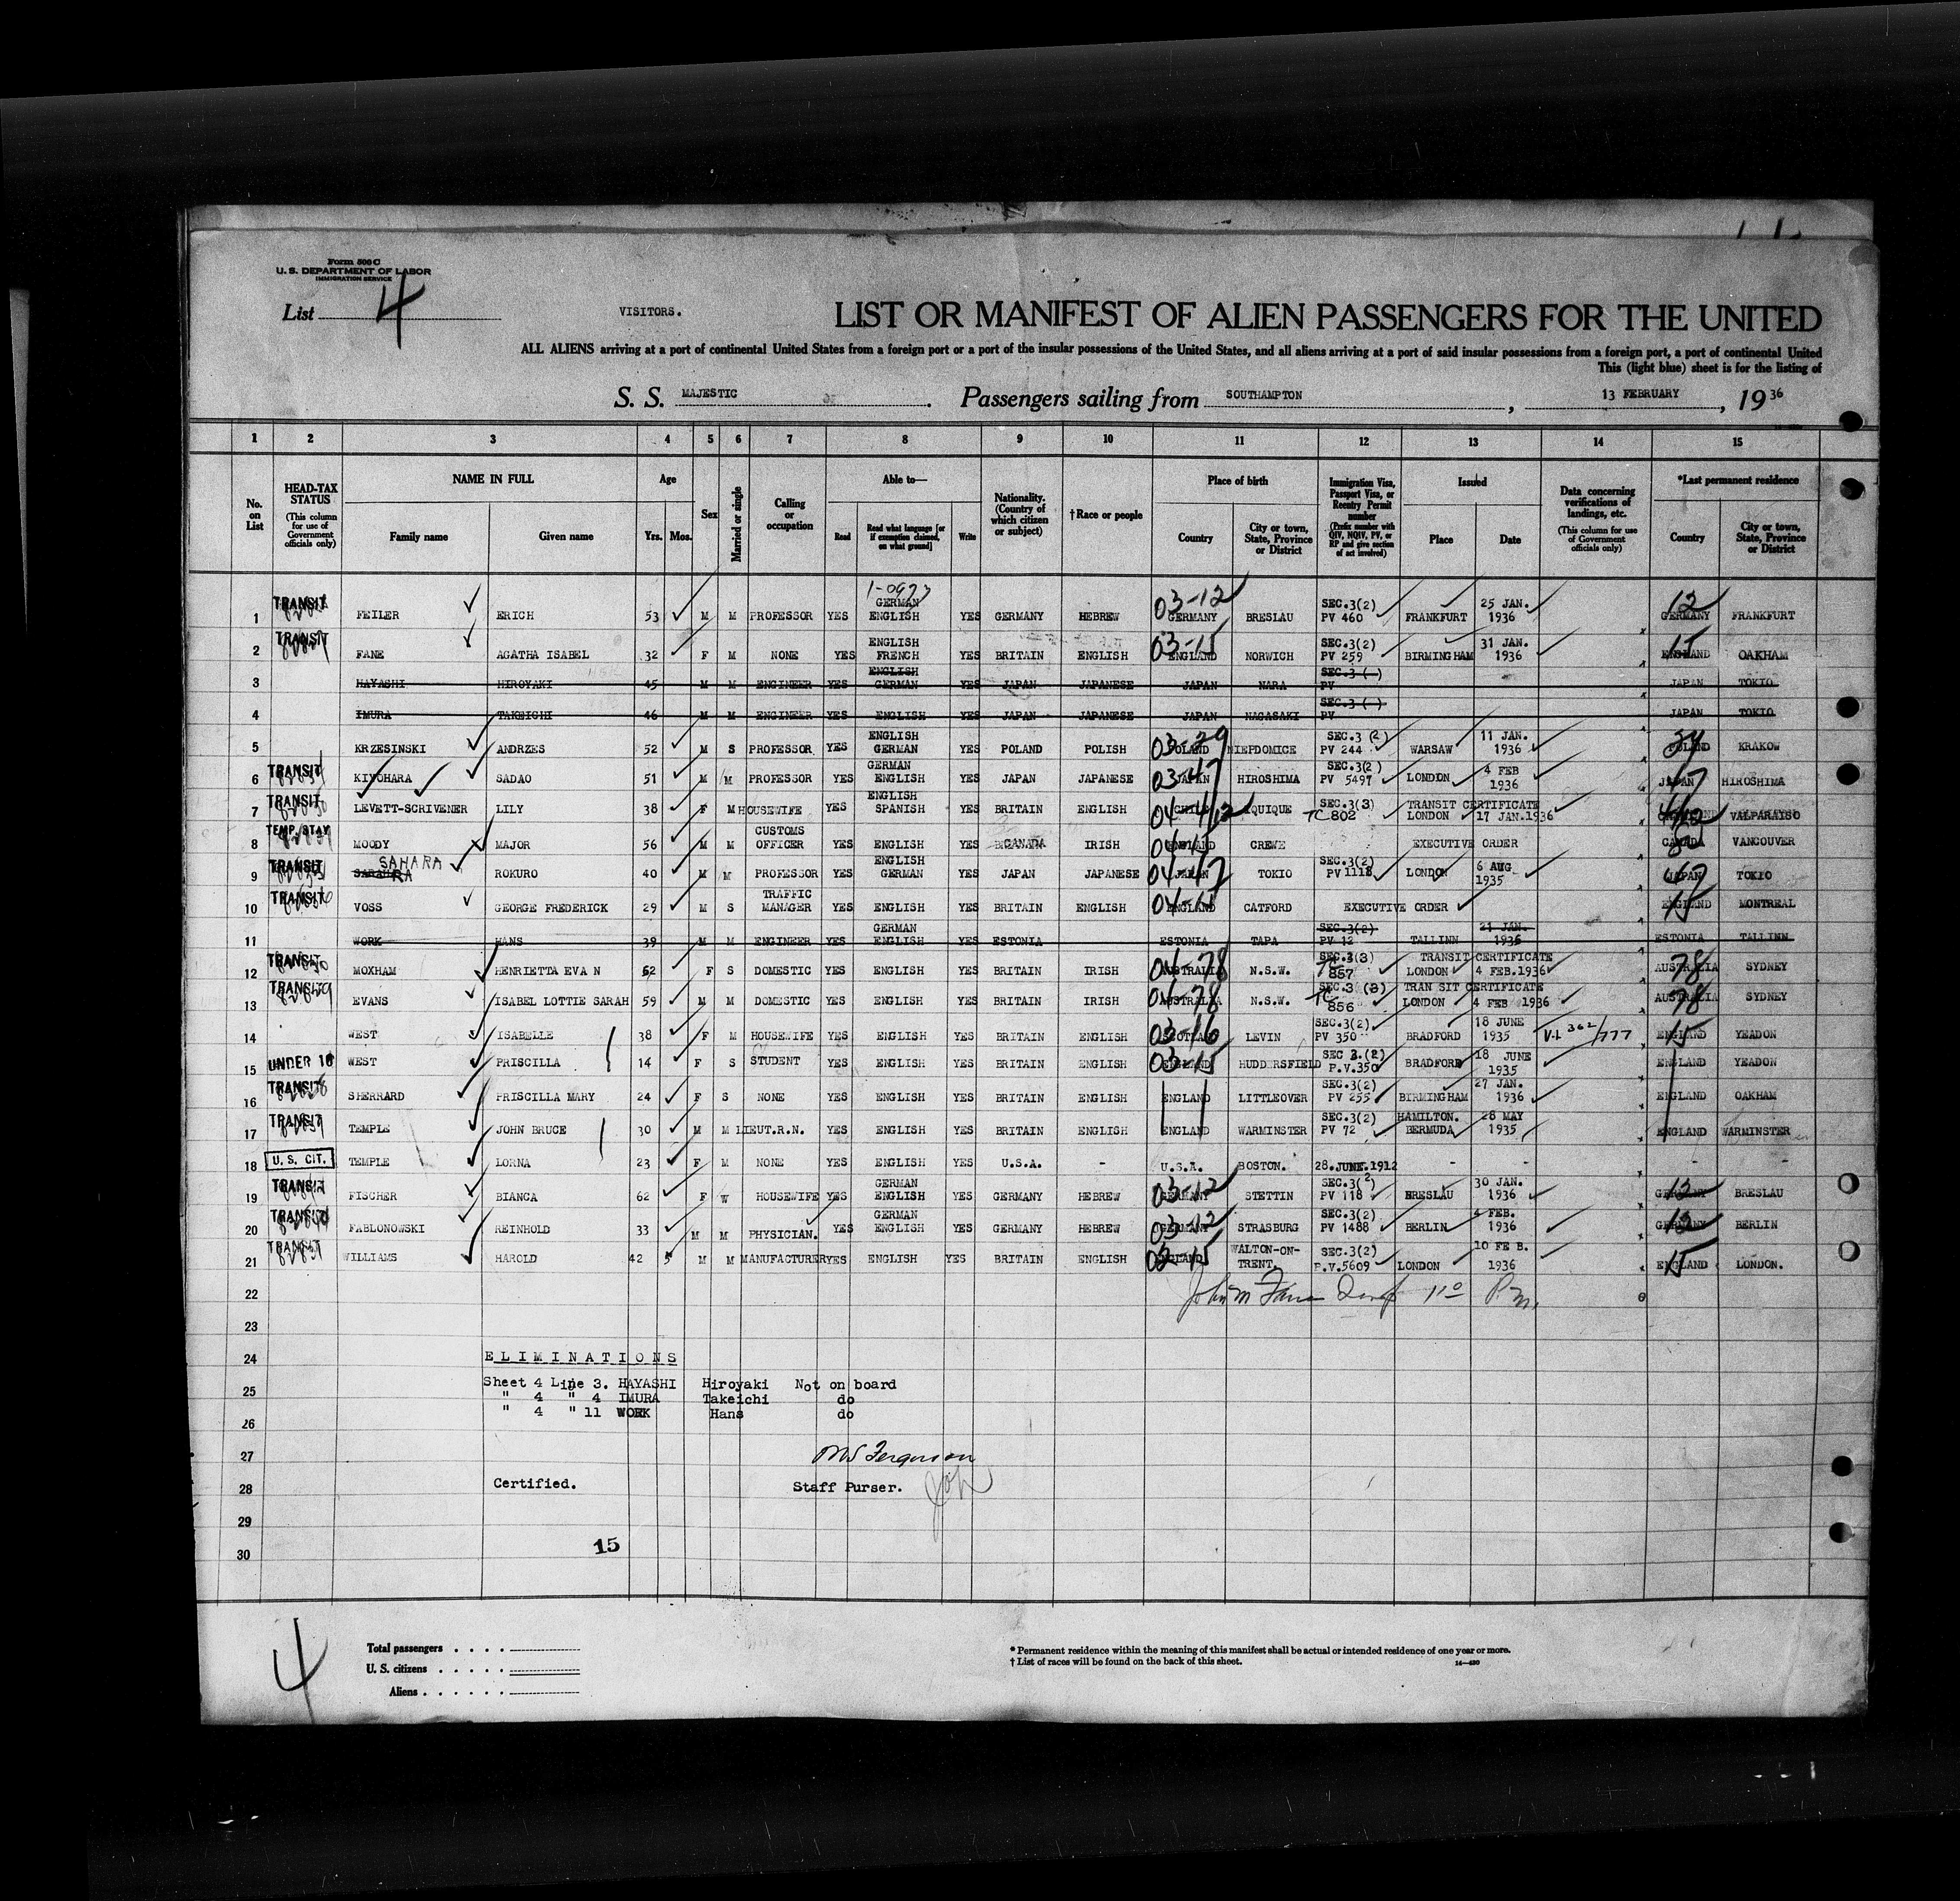 Form 500 C
U. S. DEPARTMENT OF LABOR
IMMIGRATION SERVICE
List 4
VISITORS.
LIST OR MANIFEST OF ALIEN PASSENGERS FOR THE UNITED
ALL ALIENS arriving at a port of continental United States from a foreign port or a port of the insular possessions of the United States, and all aliens arriving at a port of said insular possessions from a foreign port, a port of continental United
This (light blue) sheet is for the listing of
S. S. MAJESTIC . Passengers sailing from SOUTHAMPTON , 13 FEBRUARY , 19 36
1 2 3 4 5 6 7 8 9 10 11 12 13 14 15
No. on List
HEAD-TAX STATUS (This column for use of Government officials only)
NAME IN FULL Family name Given name
Age Yrs. Mos.
Sex
Married or single
Calling or occupation
Able to— Read Read what language [or if exemption claimed, on what ground] Write
Nationality. (Country of which citizen or subject)
†Race or people
Place of birth Country City or town, State, Province or District
Immigration Visa, Passport Visa, or Reentry Permit number (Prefix number with QIV, NQIV, PV, or RP and give section of act involved)
Issued Place Date
Data concerning verifications of landings, etc. (This column for use of Government officials only)
*Last permanent residence Country City or town, State, Province or District
1 TRANSIT FEILER ERICH 53 M M PROFESSOR YES GERMAN ENGLISH YES GERMANY HEBREW 03-12 GERMANY BRESLAU SEC.3(2) PV 460 FRANKFURT 25 JAN. 1936 12 GERMANY FRANKFURT
2 TRANSIT FANE AGATHA ISABEL 32 F M NONE YES ENGLISH FRENCH YES BRITAIN ENGLISH 03-15 ENGLAND NORWICH SEC.3(2) PV 259 BIRMINGHAM 31 JAN. 1936 15 ENGLAND OAKHAM
3 HAYASHI HIROYAKI 45 M M ENGINEER YES ENGLISH GERMAN YES JAPAN JAPANESE JAPAN NARA SEC.3 ( ) PV JAPAN TOKIO
4 IMURA TAKEICHI 46 M M ENGINEER YES ENGLISH YES JAPAN JAPANESE JAPAN NAGASAKI SEC.3 ( ) PV JAPAN TOKIO
5 KRZESINSKI ANDRZES 52 M S PROFESSOR YES ENGLISH GERMAN YES POLAND POLISH 03-29 POLAND NIEFDOMICE SEC.3 (2) PV 244 WARSAW 11 JAN. 1936 POLAND KRAKOW
6 TRANSIT KIYOHARA SADAO 51 M M PROFESSOR YES GERMAN ENGLISH YES JAPAN JAPANESE 03-47 JAPAN HIROSHIMA SEC.3(2) PV 5497 LONDON 4 FEB 1936 47 JAPAN HIROSHIMA
7 TRANSIT LEVETT-SCRIVENER LILY 38 F M HOUSEWIFE YES ENGLISH SPANISH YES BRITAIN ENGLISH CHILE IQUIQUE SEC.3(3) TC 802 TRANSIT CERTIFICATE LONDON 17 JAN.1936 VALPARAYSO
8 TEMP. STAY MOODY MAJOR 56 M M CUSTOMS OFFICER YES ENGLISH YES CANADA IRISH 04-15 ENGLAND CREWE EXECUTIVE ORDER CANADA VANCOUVER
9 TRANSIT SAHARA ROKURO 40 M M PROFESSOR YES ENGLISH GERMAN YES JAPAN JAPANESE 04-47 JAPAN TOKIO SEC.3(2) PV 1118 LONDON 6 AUG 1935 47 JAPAN TOKIO
10 TRANSIT VOSS GEORGE FREDERICK 29 M S TRAFFIC MANAGER YES ENGLISH YES BRITAIN ENGLISH 04-15 ENGLAND CATFORD EXECUTIVE ORDER 15 ENGLAND MONTREAL
11 WORK HANS 39 M M ENGINEER YES GERMAN ENGLISH YES ESTONIA ESTONIA TAPA SEC.3(2) PV 12 TALLINN 21 JAN. 1936 ESTONIA TALLINN
12 TRANSIT MOXHAM HENRIETTA EVA N 62 F S DOMESTIC YES ENGLISH YES BRITAIN IRISH 04-78 AUSTRALIA N.S.W. SEC.3(3) TC 857 TRANSIT CERTIFICATE LONDON 4 FEB.1936 78 AUSTRALIA SYDNEY
13 TRANSIT EVANS ISABEL LOTTIE SARAH 59 M M DOMESTIC YES ENGLISH YES BRITAIN IRISH 04-78 AUSTRALIA N.S.W. SEC.3 (3) TC 856 TRAN SIT CERTIFICATE LONDON 4 FEB 1936 78 AUSTRALIA SYDNEY
14 WEST ISABELLE 38 F M HOUSEWIFE YES ENGLISH YES BRITAIN ENGLISH 03-16 SCOTLAND LEVIN SEC.3(2) PV 350 BRADFORD 18 JUNE 1935 V-L 362/777 15 ENGLAND YEADON
15 UNDER 16 WEST PRISCILLA 14 F S STUDENT YES ENGLISH YES BRITAIN ENGLISH 03-15 ENGLAND HUDDERSFIELD SEC 3.(2) P.V.350 BRADFORD 18 JUNE 1935 ENGLAND YEADON
16 TRANSIT SHERRARD PRISCILLA MARY 24 F S NONE YES ENGLISH YES BRITAIN ENGLISH ENGLAND LITTLEOVER SEC.3(2) PV 255 BIRMINGHAM 27 JAN. 1936 ENGLAND OAKHAM
17 TRANSIT TEMPLE JOHN BRUCE 30 M M LIEUT.R.N. YES ENGLISH YES BRITAIN ENGLISH ENGLAND WARMINSTER SEC.3(2) PV 72 HAMILTON. BERMUDA 28 MAY 1935 ENGLAND WARMINSTER
18 U. S. CIT. TEMPLE LORNA 23 F M NONE YES ENGLISH YES U.S.A. - U.S.A. BOSTON. 28.JUNE.1912 - - - -
19 TRANSIT FISCHER BIANCA 62 F W HOUSEWIFE YES GERMAN ENGLISH YES GERMANY HEBREW 03-12 GERMANY STETTIN SEC.3(2) PV 118 BRESLAU 30 JAN. 1936 12 GERMANY BRESLAU
20 TRANSIT FABLONOWSKI REINHOLD 33 M M PHYSICIAN. YES GERMAN ENGLISH YES GERMANY HEBREW 03-12 GERMANY STRASBURG SEC.3(2) PV 1488 BERLIN 4 FEB. 1936 12 GERMANY BERLIN
21 TRANSIT WILLIAMS HAROLD 42 5 M M MANUFACTURER YES ENGLISH YES BRITAIN ENGLISH 03-15 ENGLAND WALTON-ON-TRENT. SEC.3(2) P.V.5609 LONDON 10 FE B. 1936 15 ENGLAND LONDON.
22 John M
23
24 ELIMINATIONS
Sheet 4 Line 3. HAYASHI Hiroyaki Not on board
25 " 4 " 4 IMURA Takeichi do
26 " 4 " 11 WORK Hans do
27 Ferguson
28 Certified. Staff Purser.
29
30 15
4
Total passengers . . . .
U. S. citizens . . . . .
Aliens . . . . . .
* Permanent residence within the meaning of this manifest shall be actual or intended residence of one year or more.
† List of races will be found on the back of this sheet.
14—430